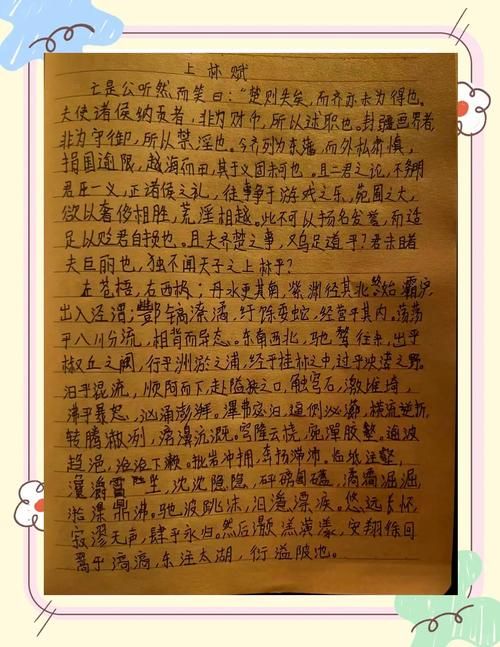 上林赋
亡是公听然而笑曰:“楚则失矣,而齐亦未为得也。
夫使诸侯纳贡者,非为财币,所以述职也。封疆画界者,
非为守御,所以禁淫也。今齐列为东藩,而外私肃慎,
捐国逾限,越海而田,其于义固未可也。且二君之论,不务明
君臣之义,正诸侯之礼,徒事争于游戏之乐,苑囿之大,
欲以奢侈相胜,荒淫相越。此不可以扬名发誉,而适
足以贬君自损也。且夫齐楚之事,又乌足道乎?君未目者
夫巨丽也,独不闻天子之上林乎?
左苍梧,右西极;丹水更其南,紫渊径其北。终始灞浐,
出入泾渭;酆镐潦潏,纡馀委蛇,经营乎其内。荡荡
乎八川分流,相背而异态。东南西北,驰骛往来,出乎
椒丘之阙,行乎洲淤之浦,经乎桂林之中,过乎泱漭之野。
汩乎混流,顺阿而下,赴隘狭之口,触穹石,激堆埼,
沸乎暴怒,汹涌澎湃。滭弗宓汩,逼侧泌瀄,横流逆折,
转腾潎洌,滂濞沆溉。穹隆云桡,宛潬胶盭。逾波
趋浥,涖涖下濑。批岩冲拥,奔扬滞沛。临坻注壑,
瀺灂霣坠,沈沈隐隐,砰磅訇礚,潏潏淈淈,
湁潗鼎沸。驰波跳沫,汩㴔漂疾。悠远长怀,
寂漻无声,肆乎永归。然后灏溔潢漾,安翔徐回,
翯乎滈滈,东注太湖,衍溢陂池。